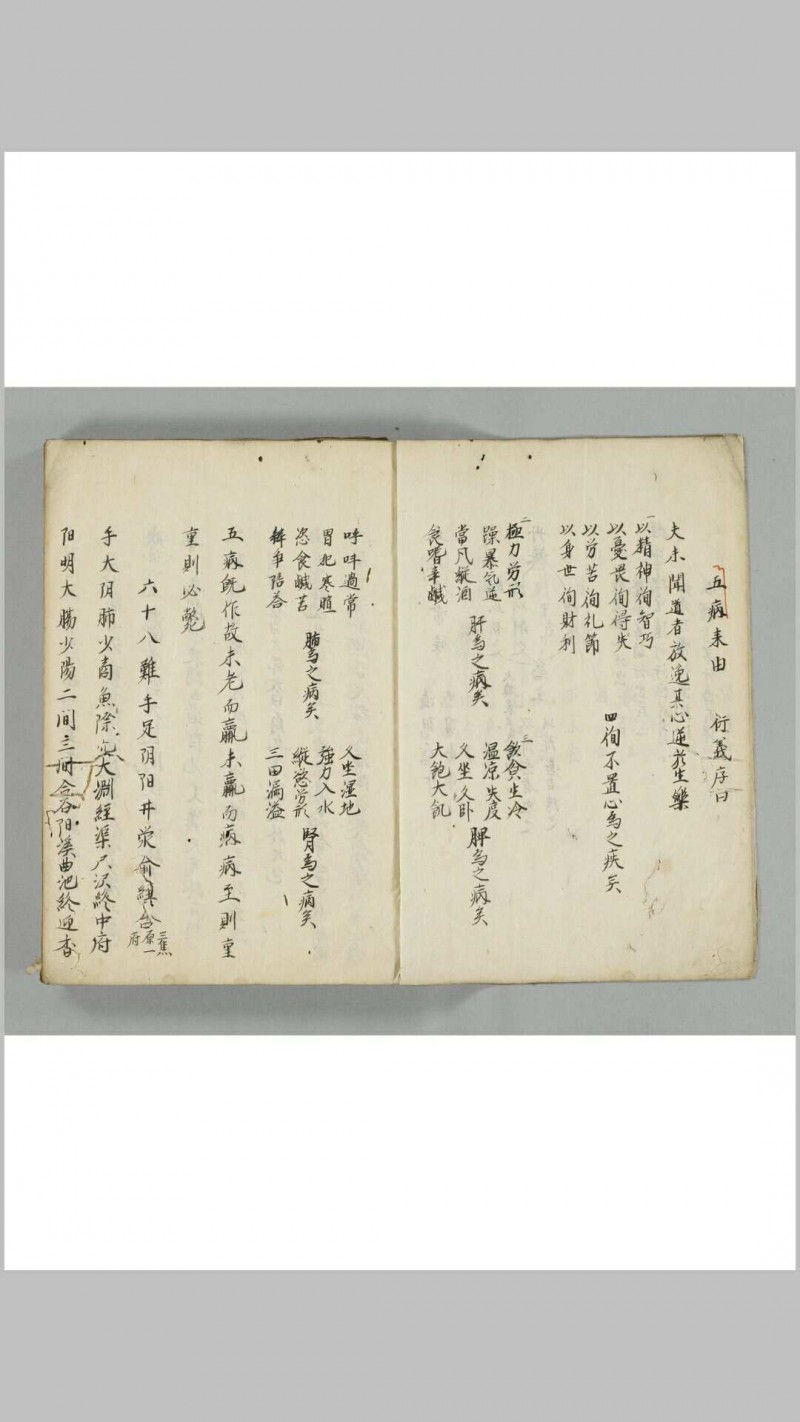 五病来由　衍義序曰
夫未聞道者放逸其心逆於生樂
一以精神徇智巧
以憂畏徇得失
以労苦徇礼節
以身世徇財利
四徇不置心為之疾矣
二極力労形
躁暴気逆
當风縦酒
食嗜辛鹹
肝為之病矣
三飲食生冷
温凉失度
久坐久卧
大飽大飢
脾為之病矣
呼呌過常
冒犯寒暄
恣食鹹苦
肺為之病矣
久坐湿地
強力入水
縦慾労形
三田漏溢
腎為之病矣
五病既作故未老而羸未羸而病病至則重
重則必斃
六十八難手足阴阳井荥俞經合
三焦
原一
府
手太阴肺少商魚際太渊經渠尺沢終中府
阳明大腸少陽二间三合谷阳溪曲池終迎香